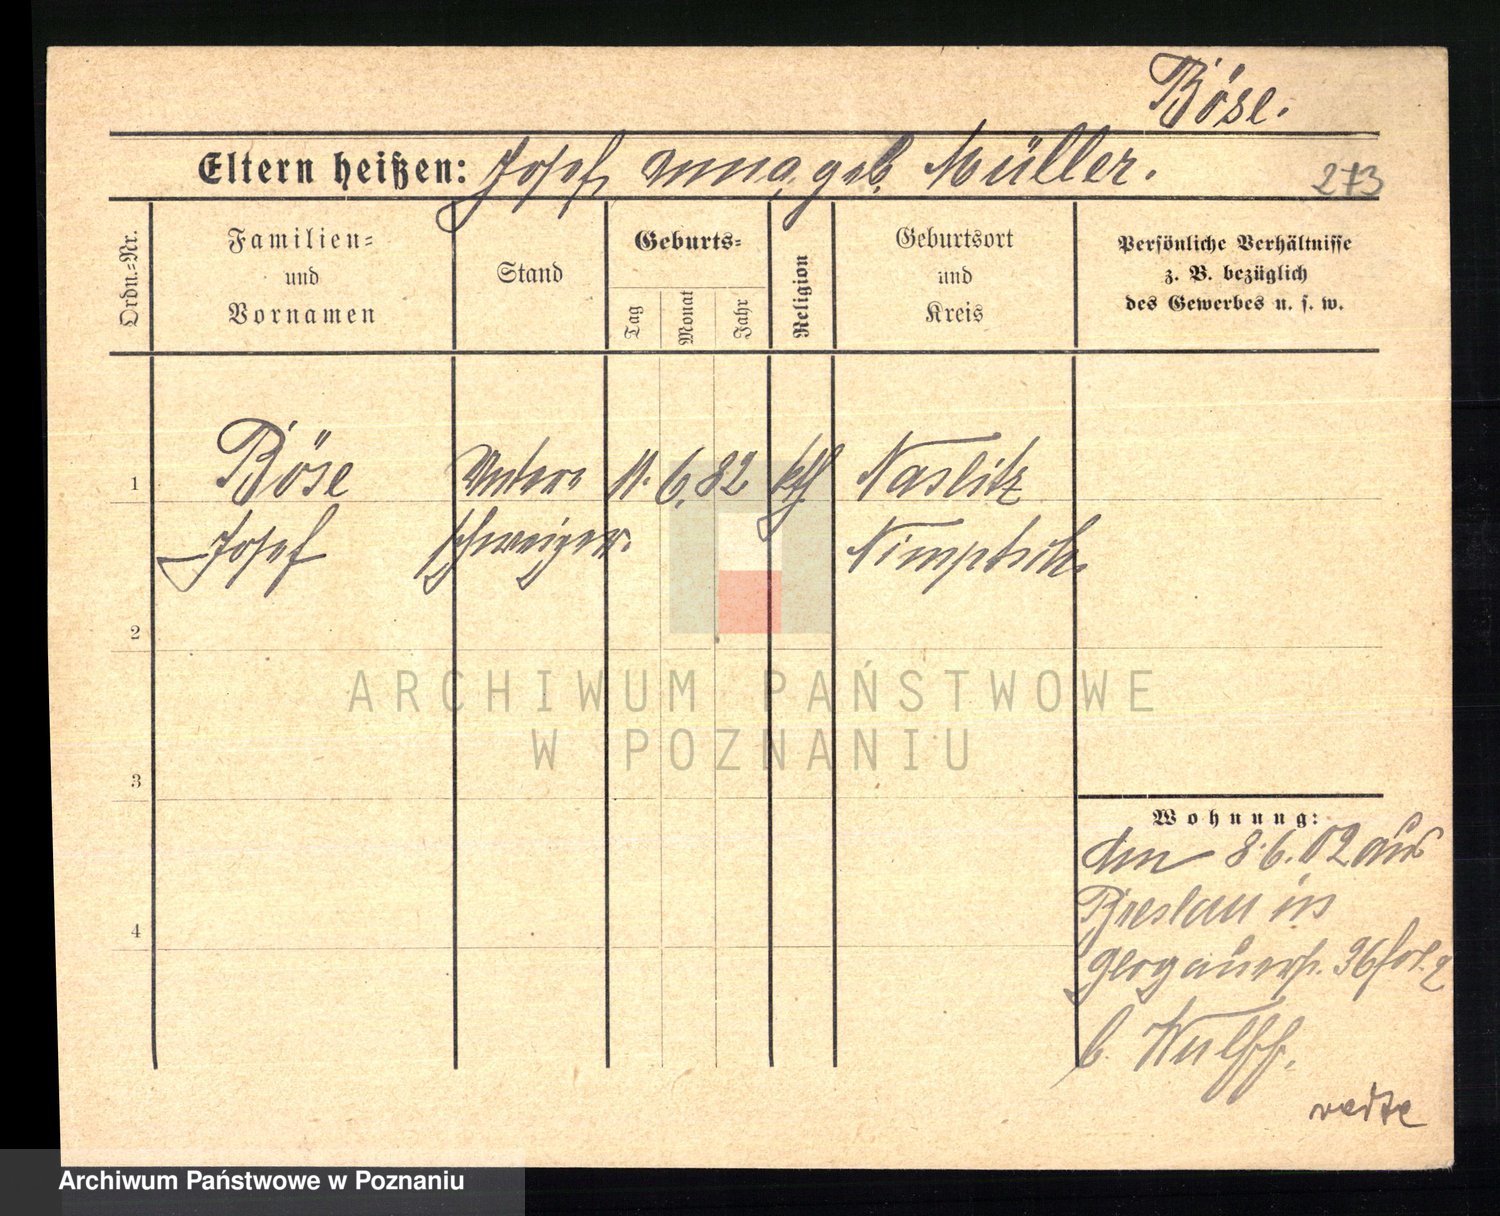 Böse.
Eltern heißen: Josef, Anna, geb. Müller.
273
Ordn.=Nr.
Familien=
und
Vornamen
Stand
Geburts=
Tag
Monat
Jahr
Religion
Geburtsort
und
Kreis
Persönliche Verhältnisse
z. B. bezüglich
des Gewerbes u. s. w.
1
Böse
Josef
Unter=
schweizer.
11. 6. 82
kth
Naslitz
Nimptsch.
2
3
4
Wohnung:
den 8.6.02 aus
Breslau in
36
b. Wulff.
ARCHIWUM PAŃSTWOWE
W POZNANIU
Archiwum Państwowe w Poznaniu